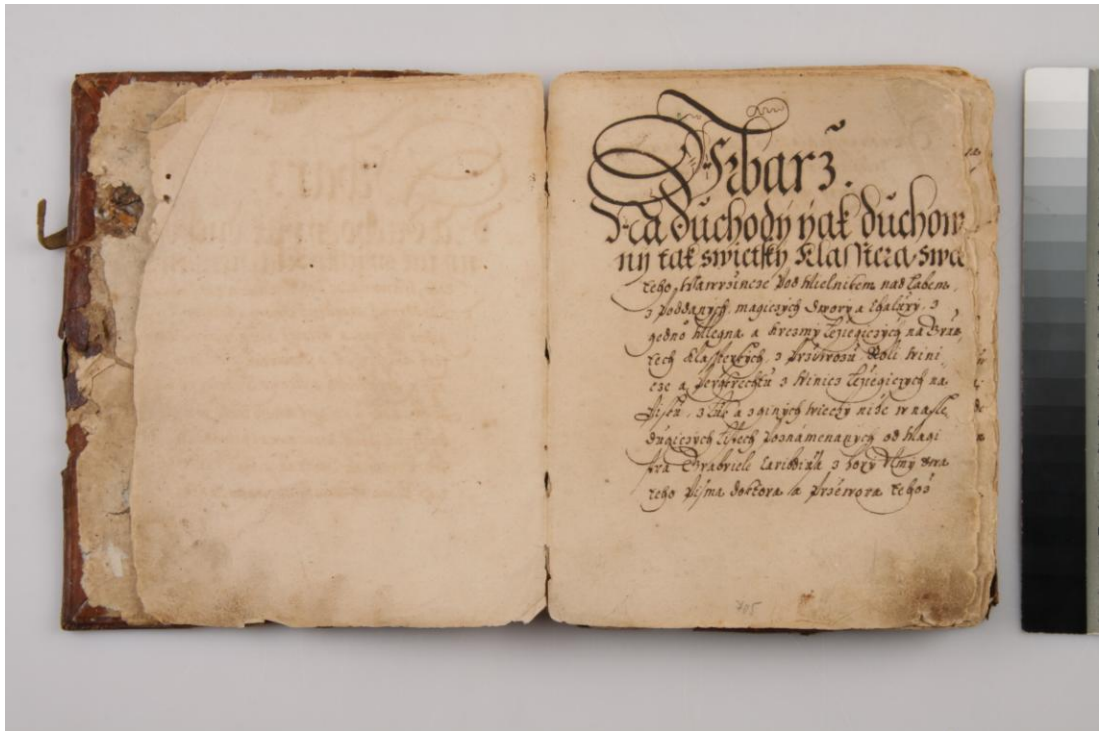 Vrbarz.
Na duchody yak duchow
ny tak swietsky klasstera swa
teho Wawrzincze pod Mielnikem nad Labem,
z poddanych, magiczych dwory a chalupy, z
gednoho Mlegna a krczmy lezicziczych na
tech klassterskych, z przewozu Roli wini
cze a z winicz lezicziczych na
z luk a z ginych wieczy nize w nasle
dugiczych listech poznamenanych od Magi
stra Gabriele z hory swa
teho pisma doktora a przewora tehoz
705